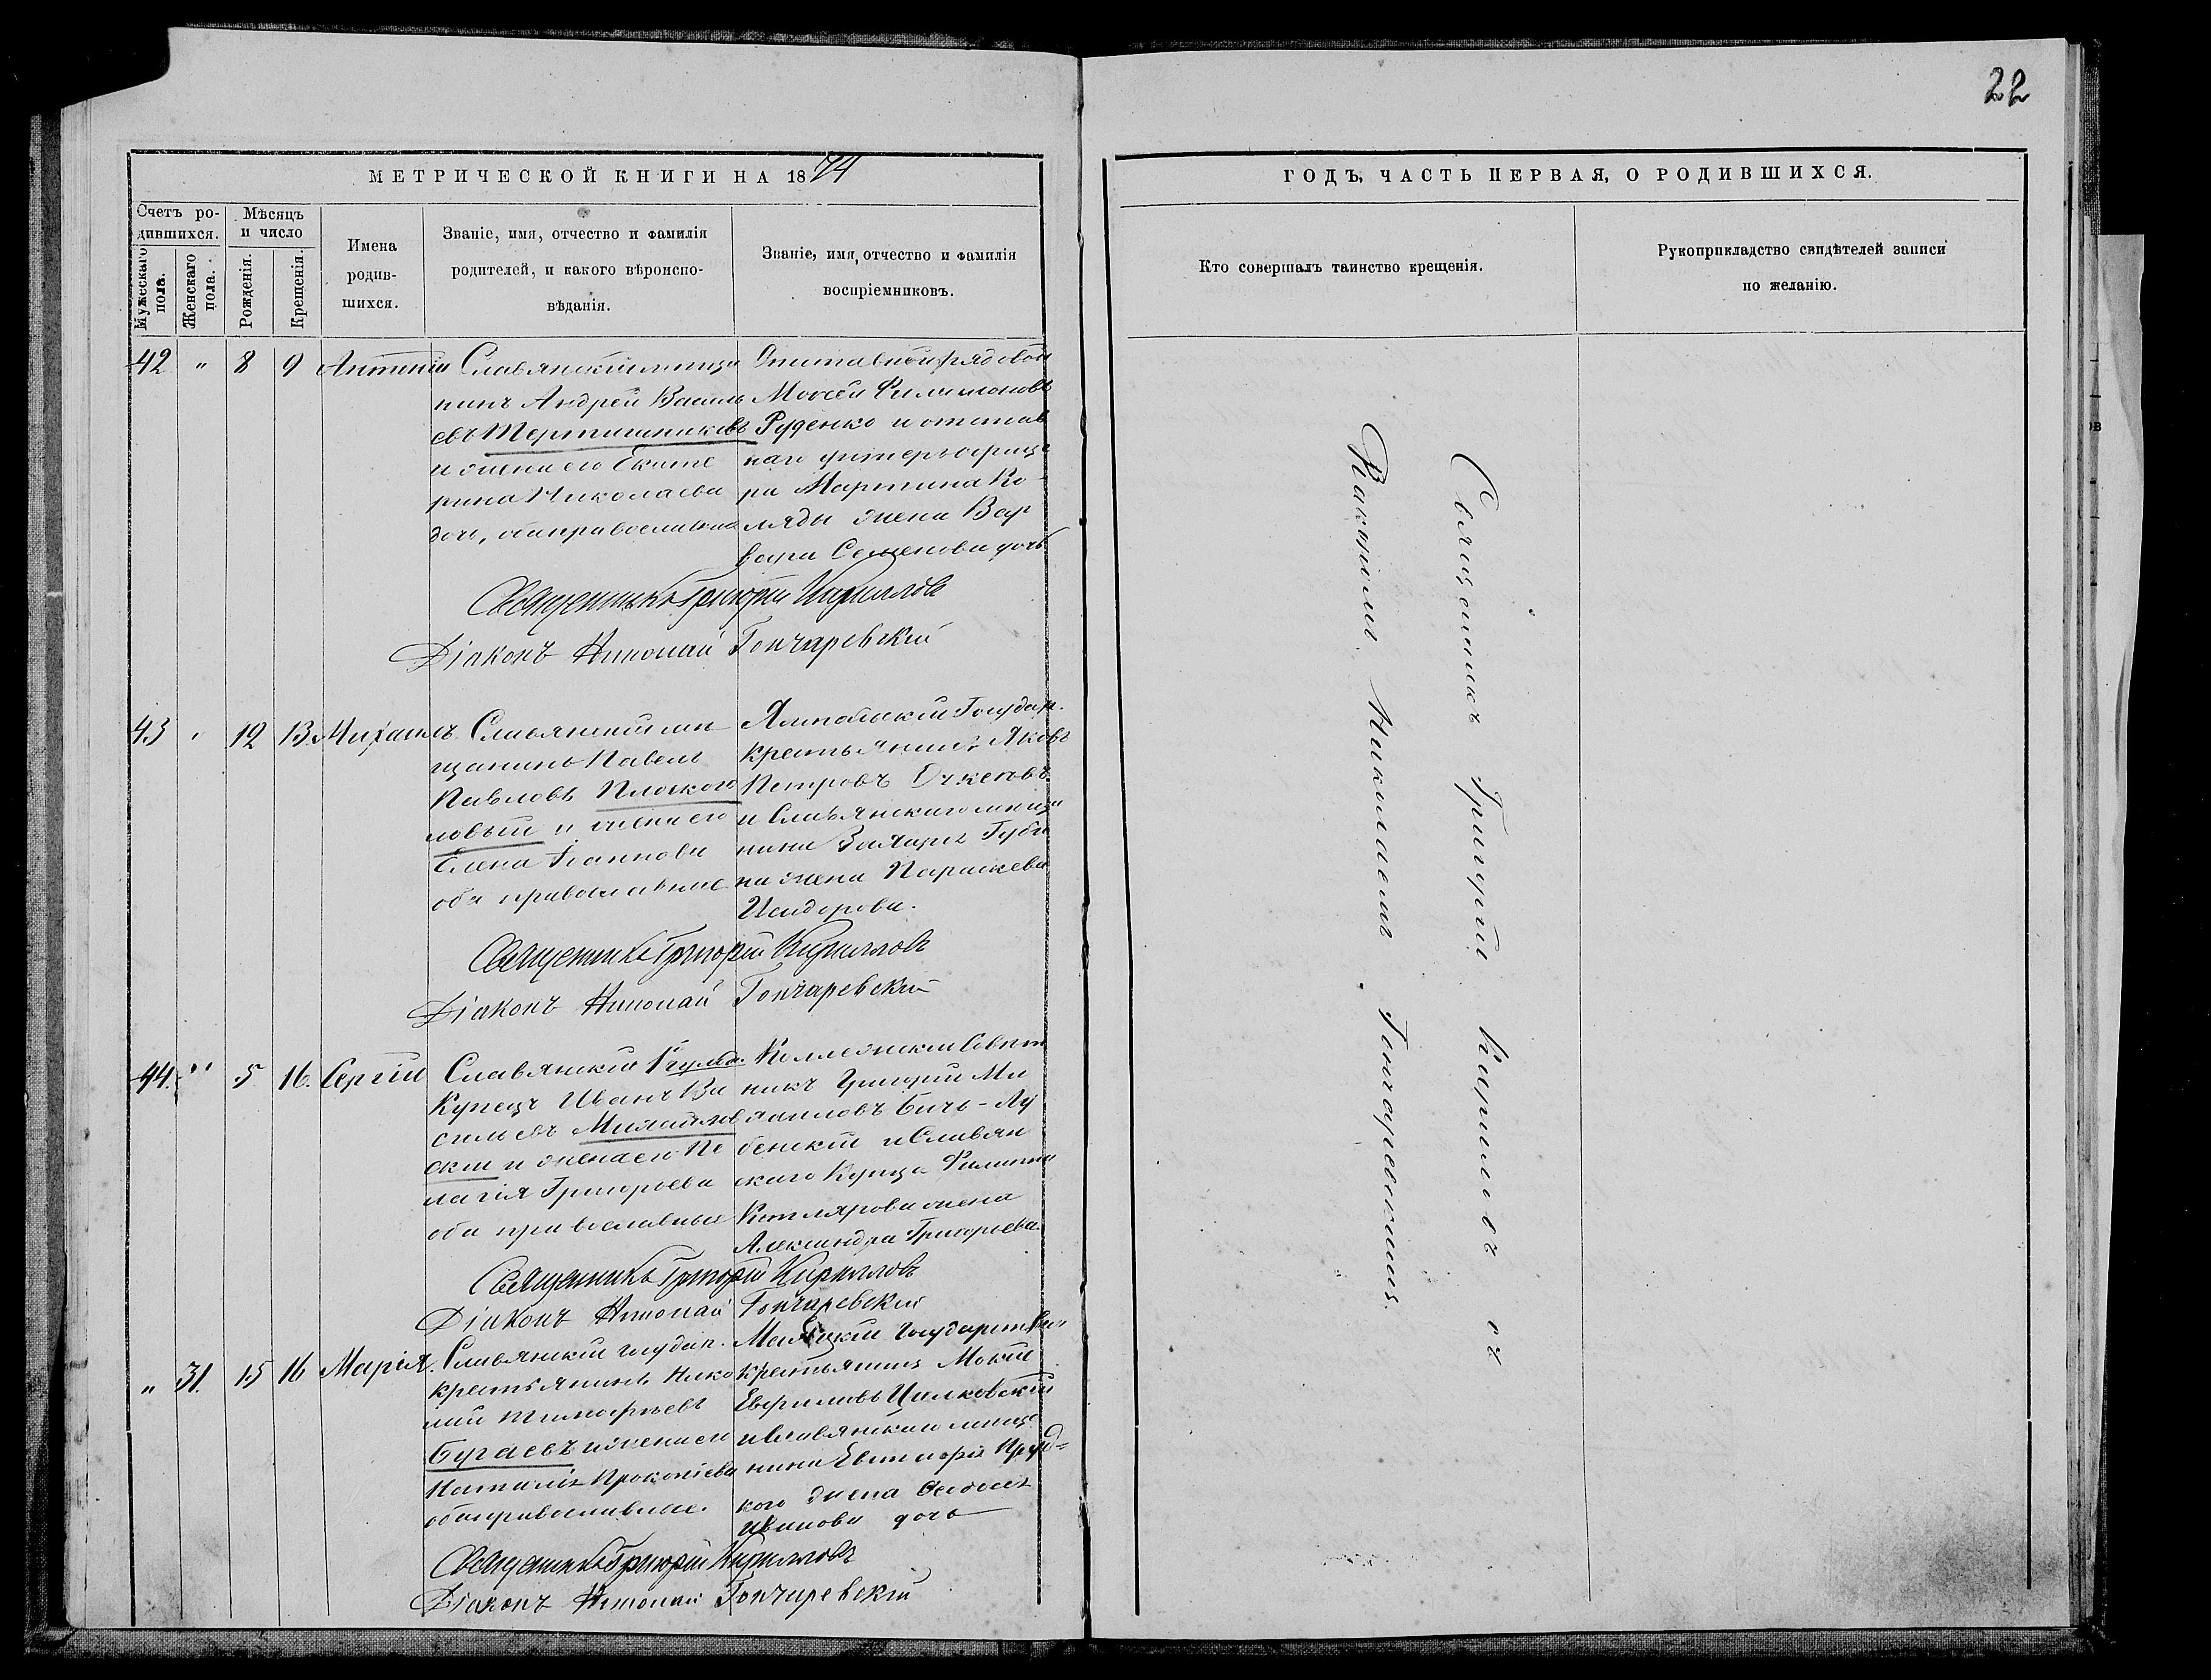 22
МЕТРИЧЕСКОЙ КНИГИ НА 1874
ГОДЪ, ЧАСТЬ ПЕРВАЯ, О РОДИВШИХСЯ.
Счетъ ро-
дившихся.
Мужескаго
пола.
Женскаго
пола.
Мѣсяцъ
и число
Рожденія.
Крещенія.
Имена
родив-
шихся.
Званіе, имя, отчество и фамилія
родителей, и какого вѣроиспо-
вѣданія.
Званіе, имя, отчество и фамилія
воспріемниковъ.
Кто совершалъ таинство крещенія.
Рукоприкладство свидѣтелей записи
по желанію.
42 " 8 9 Антоній
Славянскій мѣща
нинъ Андрей Василь
евъ Тертишниковъ
и жена его Екате
рина Николаева
дочь, оба православные
Отставной рядовой
Моѵсей Филимоновъ
Руденко и отстав
наго унтеръ офице
ра Мартина Ко-
ляды жена Вар
вара Семенова дочь
Священникъ Григорій Кирилловъ
Діаконъ Николай Гончаревскій
43 " 12 13 Михаилъ
Славянскій мѣ
щанинъ Павелъ
Павловъ Плоского
ловый и жена его
Елена Іоаннова
оба православные
Ямпольскій Государ.
крестьянинъ Яковъ
Петровъ
и Славянскаго мѣща
нина Захаріи Губи
на жена Параскева
Исидорова.
Священникъ Григорій Кирилловъ
Діаконъ Николай Гончаревскій
44. " 5 16. Сергій
Славянскій 2 гильд.
Купецъ Иванъ Ва
сильевъ Михайлов
скій и жена его Пе
лагія Григорьева
оба православные
Коллежскій Совѣт
никъ Григорій Ми
хаиловъ Бичь-Лу
бенскій и Славян
скаго Купца Филиппа
Котлярова жена
Александра Григорьева.
Священникъ Григорій Кирилловъ
Діаконъ Николай Гончаревскій
" 31. 15 16 Марія.
Славянскій государ.
крестьянинъ Нико
лай Тимофѣевъ
Бугаевъ и жена его
Наталія Прокопіева
оба православные.
Маяцкій Государствен
крестьянинъ Мокій
Ефимовъ Цилковскій
и Славянскаго мѣща
нина
кого жена
Иванова дочь
Священникъ Григорій Кирилловъ
Діаконъ Николай Гончаревскій
Священникъ Григорій Кириловъ съ
Діакономъ Николаемъ Гончаревскимъ.